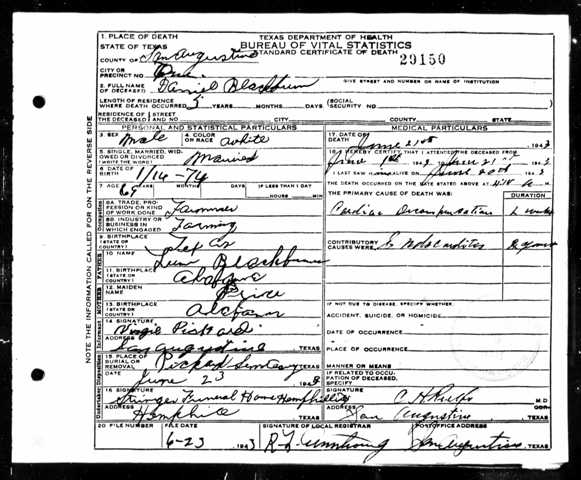 1. PLACE OF DEATH
STATE OF TEXAS
COUNTY OF San Augustine
CITY OR PRECINCT NO. One
TEXAS DEPARTMENT OF HEALTH
BUREAU OF VITAL STATISTICS
STANDARD CERTIFICATE OF DEATH
29150
GIVE STREET AND NUMBER OR NAME OF INSTITUTION
2. FULL NAME OF DECEASED Daniel Blackburn
LENGTH OF RESIDENCE WHERE DEATH OCCURRED 5 YEARS MONTHS DAYS (SOCIAL SECURITY NO.
RESIDENCE OF THE DECEASED STREET AND NO. CITY COUNTY STATE
PERSONAL AND STATISTICAL PARTICULARS
3. SEX Male 4. COLOR OR RACE white
5. SINGLE, MARRIED, WIDOWED OR DIVORCED (WRITE THE WORD) Married
6. DATE OF BIRTH 1/14-74
7. AGE 69 YEARS MONTHS DAYS IF LESS THAN 1 DAY HOURS MIN
8A. TRADE, PROFESSION OR KIND OF WORK DONE Farmer
8B. INDUSTRY OR BUSINESS IN WHICH ENGAGED Farming
9. BIRTHPLACE (STATE OR COUNTRY)
10. NAME Blackburn
11. BIRTHPLACE (STATE OR COUNTRY)
12. MAIDEN NAME Price
13. BIRTHPLACE (STATE OR COUNTRY) Alabama
14. SIGNATURE Virgie Pickard
ADDRESS San Augustine TEXAS
15. PLACE OF BURIAL OR REMOVAL Pickard TEXAS
June 23 1943
16. SIGNATURE Stringer Funeral Home Hemphill
ADDRESS Hemphill TEXAS
MEDICAL PARTICULARS
17. DATE OF DEATH June 21st 1943
18. I HEREBY CERTIFY THAT I ATTENDED THE DECEASED FROM
June 1st 1943 June 21st 1943
I LAST SAW ALIVE ON June 20th 1943
THE DEATH OCCURRED ON THE DATE STATED ABOVE AT
THE PRIMARY CAUSE OF DEATH WAS: DURATION
Cardiac Decompensation
CONTRIBUTORY CAUSES WERE: Endocarditis
IF NOT DUE TO DISEASE, SPECIFY WHETHER:
ACCIDENT, SUICIDE, OR HOMICIDE
DATE OF OCCURRENCE
PLACE OF OCCURRENCE
MANNER OR MEANS
IF RELATED TO OCCUPATION OF DECEASED, SPECIFY
SIGNATURE M.D.
ADDRESS San Augustine TEXAS
20. FILE NUMBER FILE DATE 6-23 1943
SIGNATURE OF LOCAL REGISTRAR
POST OFFICE ADDRESS San Augustine, TEXAS
NOTE THE INFORMATION CALLED FOR ON THE REVERSE SIDE